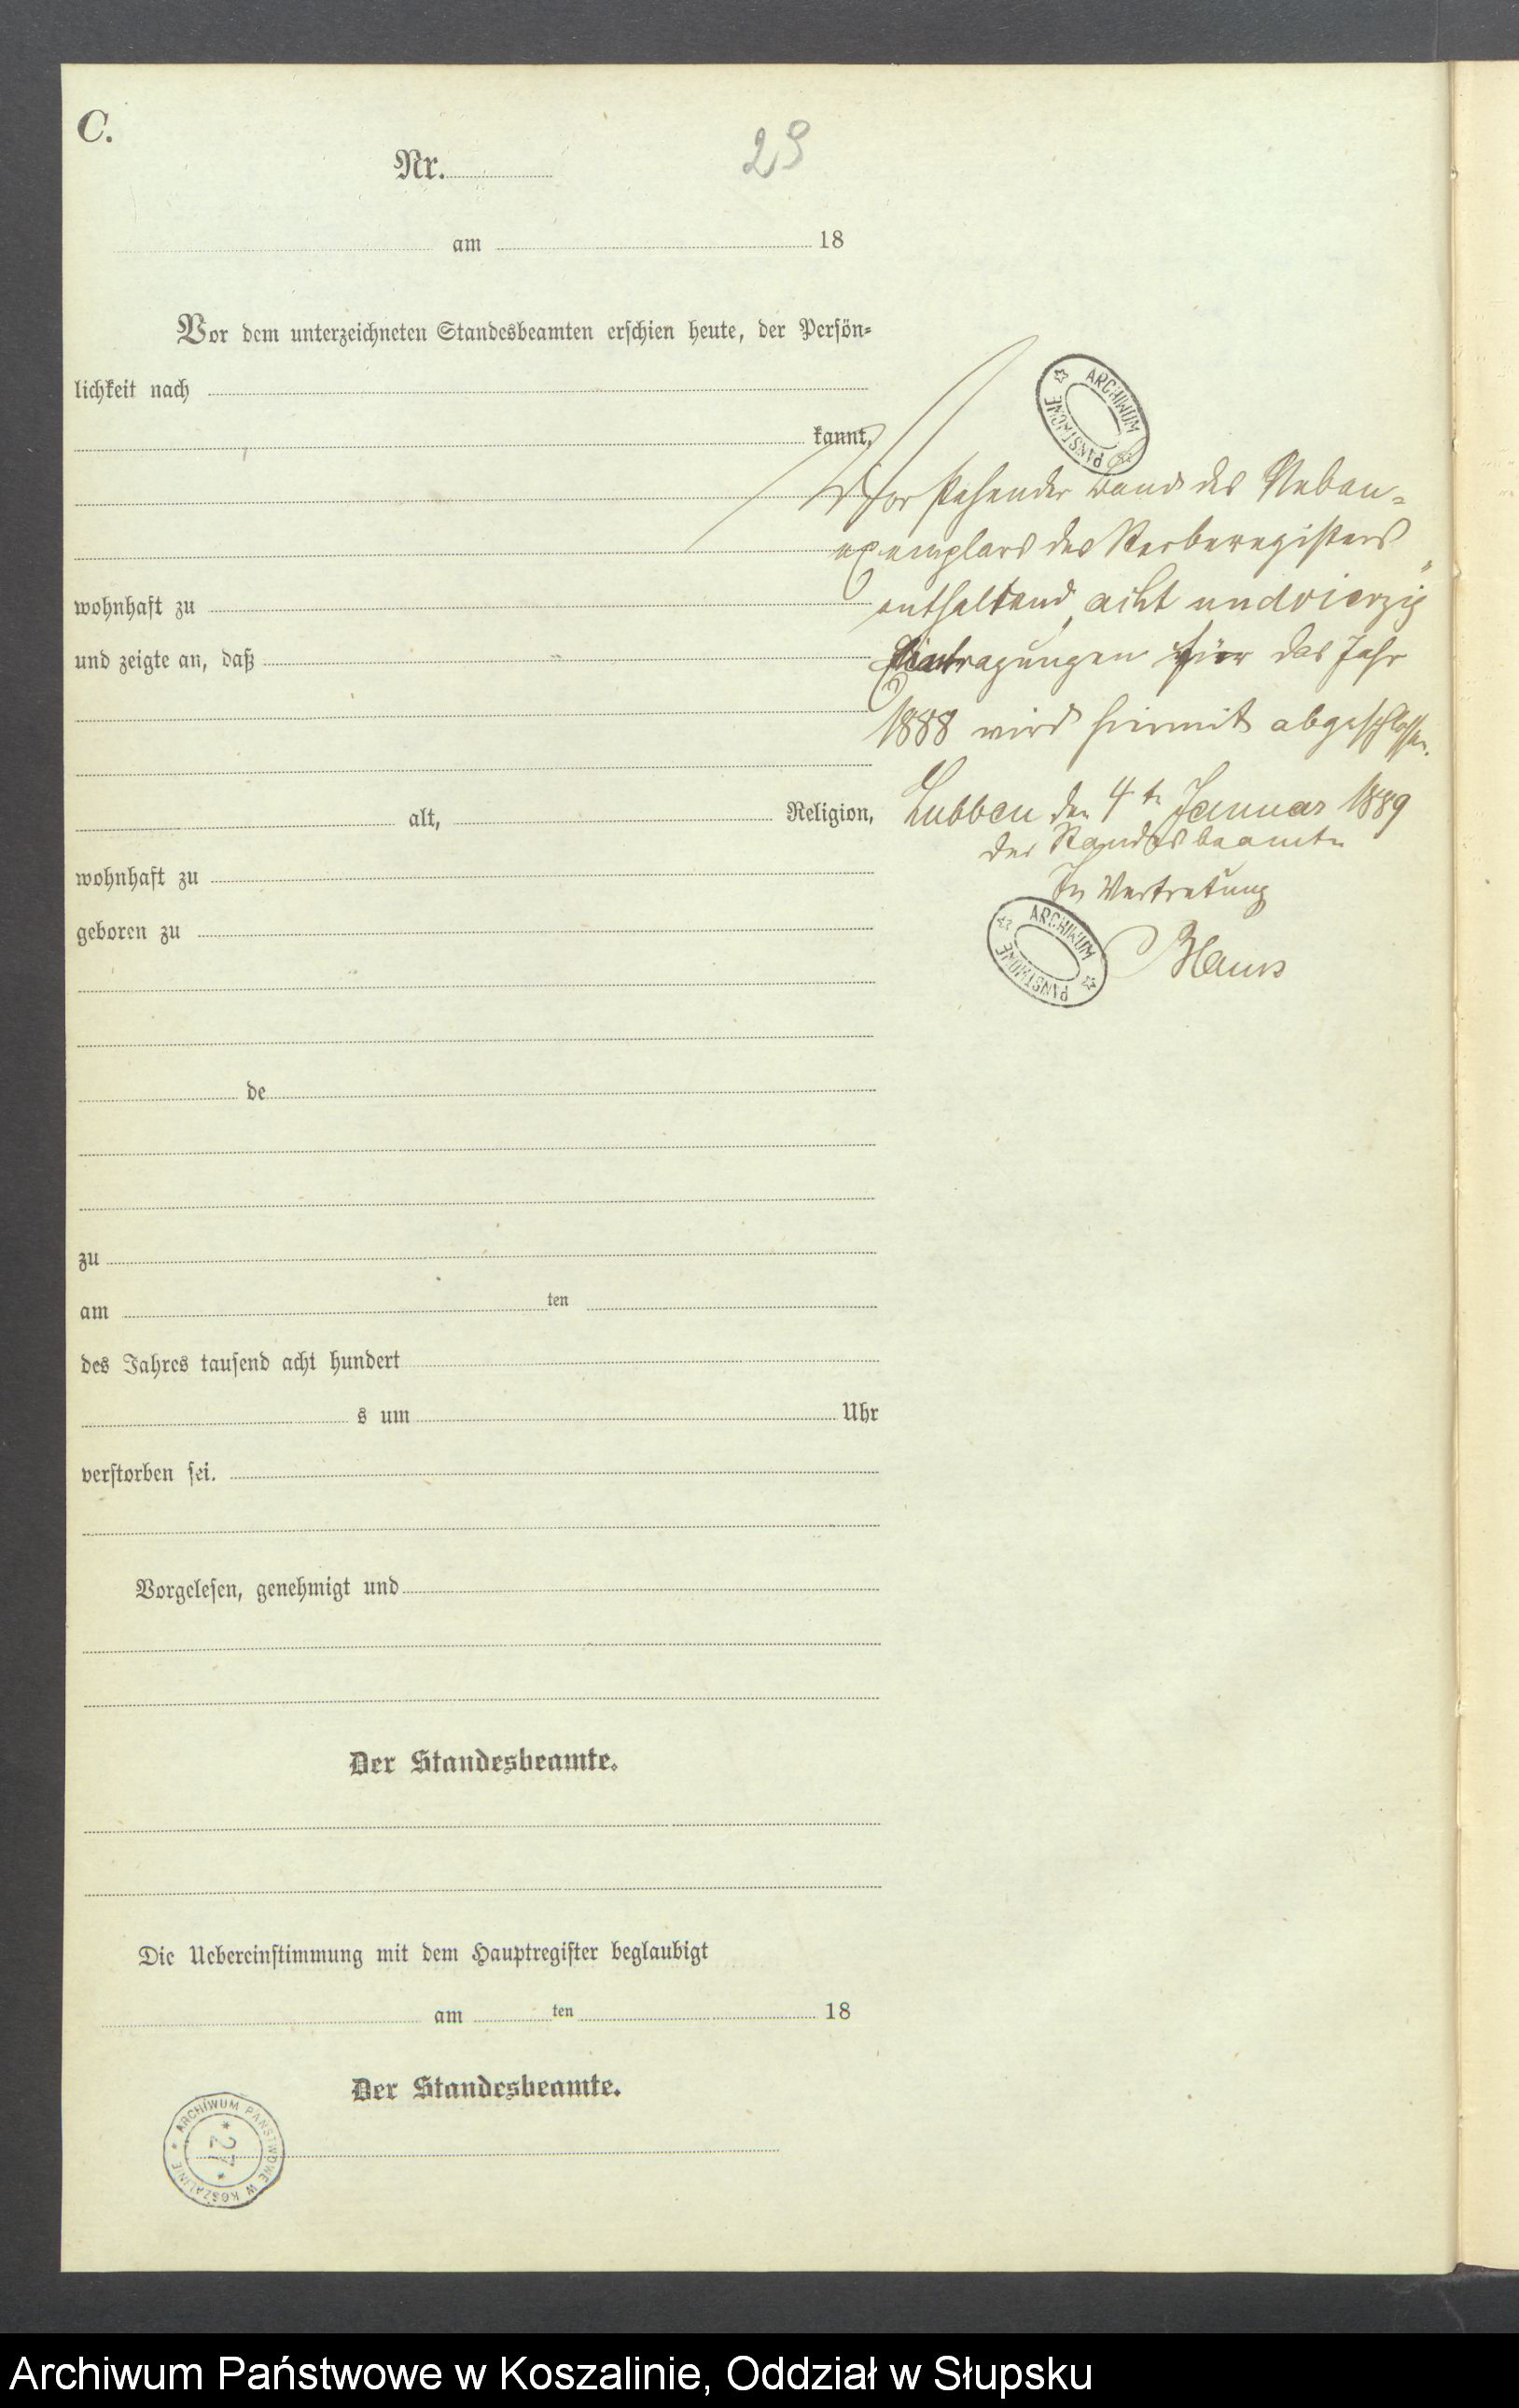 C.
Nr.
29
am 18
Vor dem unterzeichneten Standesbeamten erschien heute, der Persön=
lichkeit nach
kannt,
wohnhaft zu
und zeigte an, daß
alt, Religion,
wohnhaft zu
geboren zu
de
zu
am ten
des Jahres tausend acht hundert
s um Uhr
verstorben sei.
Vorgelesen, genehmigt und
Der Standesbeamte.
Die Uebereinstimmung mit dem Hauptregister beglaubigt
am ten 18
Der Standesbeamte.
ARCHIWUM PAŃSTWOWE W KOSZALINIE
27
ARCHIWUM PAŃSTWOWE
Vorstehender Band des Neben=
exemplars des Sterberegisters
enthaltend „acht und vierzig"
Eintragungen für das Jahr
1888 wird hiermit abgeschlossen.
Lubben den 4te Januar 1889
der Standesbeamte
In Vertretung
ARCHIWUM PAŃSTWOWE
Archiwum Państwowe w Koszalinie, Oddział w Słupsku